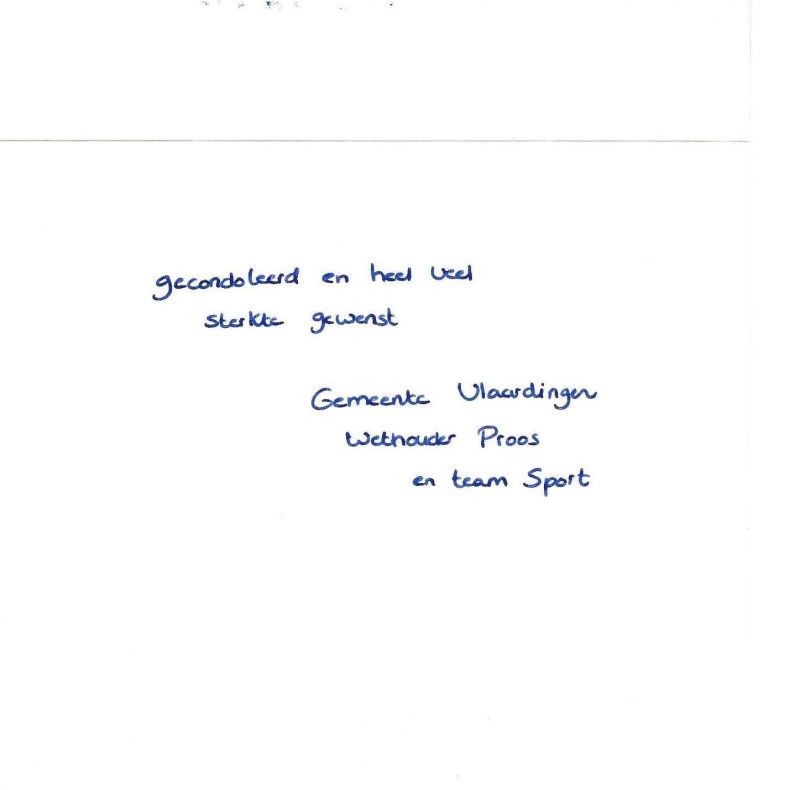 gecondoleerd en heel veel
sterkte gewenst
Gemeente Vlaardingen
Wethouder Proos
en team Sport